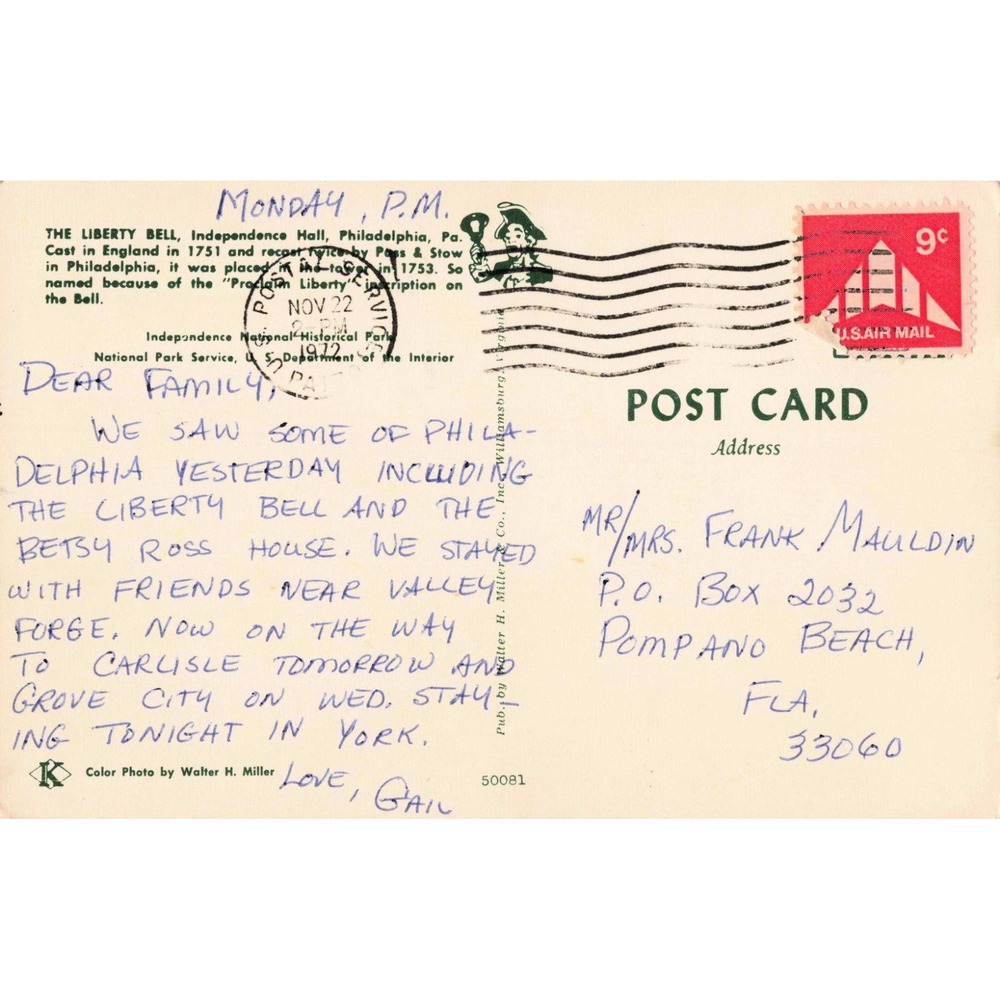 MONDAY, P.M.
THE LIBERTY BELL, Independence Hall, Philadelphia, Pa.
Cast in England in 1751 and recast twice by Pass & Stow
in Philadelphia, it was placed in the tower in 1753. So
named because of the "Proclaim Liberty" inscription on
the Bell.
Independence National Historical Park
National Park Service, U. S. Department of the Interior
U.S. POSTAL SERVICE
PA
NOV 22
2 PM
1972
9c
U.S. AIR MAIL
DEAR FAMILY,
WE SAW SOME OF PHILA-
DELPHIA YESTERDAY INCLUDING
THE LIBERTY BELL AND THE
BETSY ROSS HOUSE. WE STAYED
WITH FRIENDS NEAR VALLEY
FORGE. NOW ON THE WAY
TO CARLISLE TOMORROW AND
GROVE CITY ON WED. STAY-
ING TONIGHT IN YORK.
LOVE,
GAIL
K
Color Photo by Walter H. Miller
50081
Pub. by Walter H. Miller & Co., Inc., Williamsburg, Virginia
POST CARD
Address
MR/MRS. FRANK MAULDIN
P.O. BOX 2032
POMPANO BEACH,
FLA,
33060